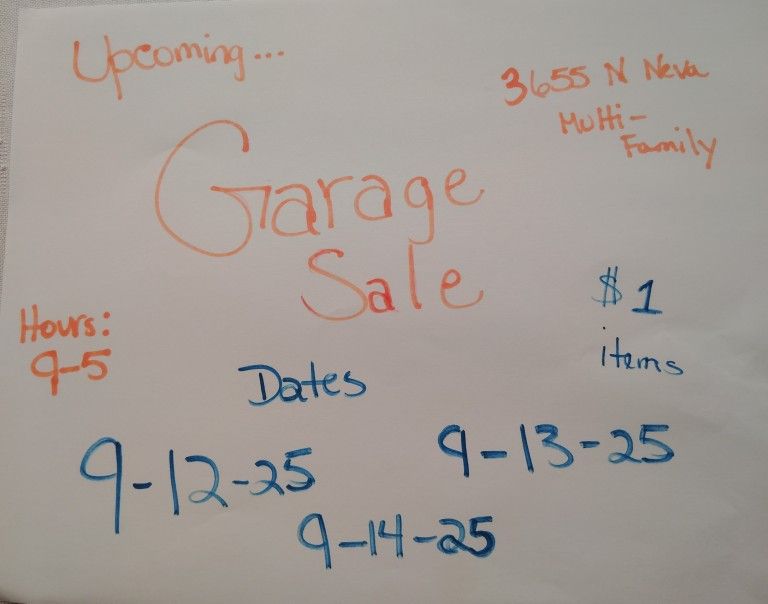 Upcoming...
3655 N Neva
Multi-
Family
Garage
Sale
$1
items
Hours:
9-5
Dates
9-12-25
9-13-25
9-14-25